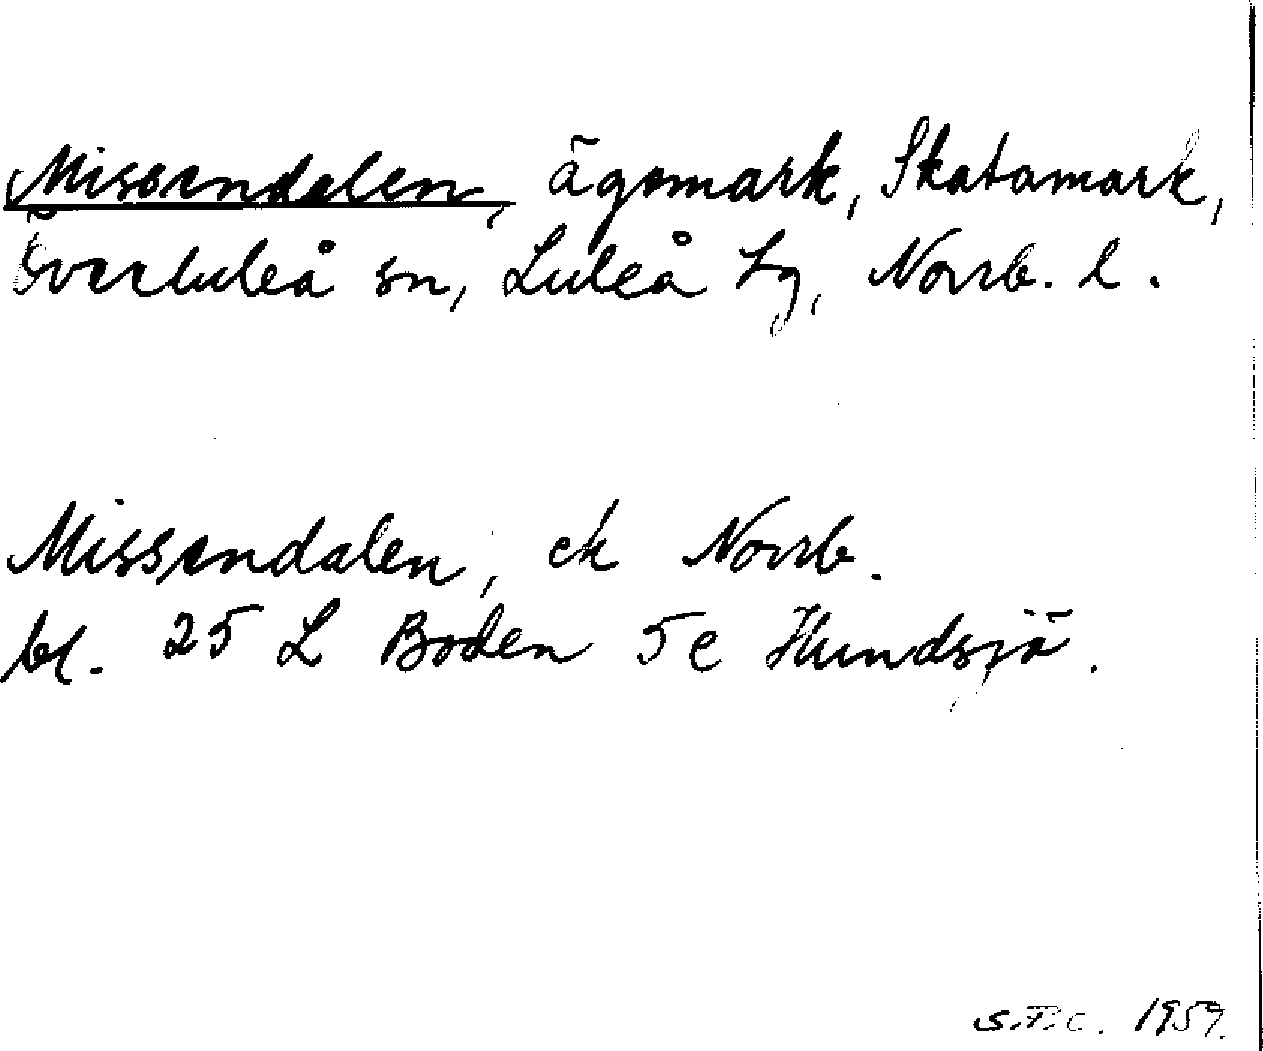 Missendalen, ägomark, Skatamark,
Överluleå sn, Luleå tg, Norrb. l.
Missendalen, ek Norrb.
bl. 25 L Boden 5 e Hundsjö.
1959.